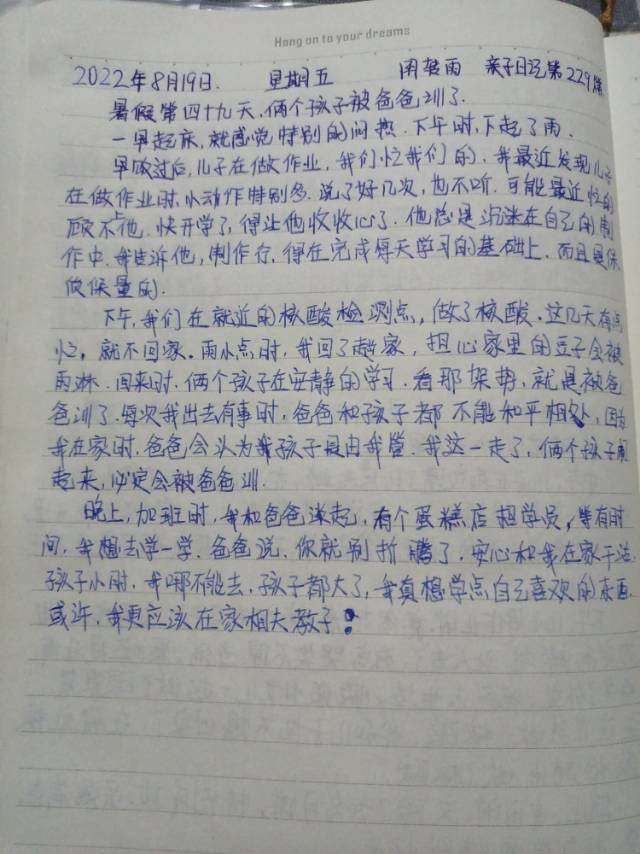 Hang on to your dreams
2022年8月19日. 星期五 阴转雨 亲子日记第229篇
暑假第四十九天,俩个孩子被爸爸训了.
一早起床,就感觉特别的闷热.下午时,下起了雨.
早饭过后,儿子在做作业,我们忙我们的.我最近发现儿子
在做作业时,小动作特别多.说了好几次,也不听.可能最近忙的
顾不上他.快开学了,得让他收收心了.他总是沉迷在自己的制
作中.我告诉他,制作行.得在完成每天学习的基础上.而且是保
质保量的.
下午,我们在就近的核酸检测点,做了核酸.这几天有点
忙,就不回家.雨小点时,我回了趟家,担心家里的豆子会被
雨淋.回来时.俩个孩子在安静的学习.看那架势,就是被爸
爸训了.每次我出去有事时,爸爸和孩子都不能和平相处,因为
我在家时.爸爸会认为我孩子是由我管.我这一走了,俩个孩子闹
起来,必定会被爸爸训.
晚上,加班时,我和爸爸谈起,有个蛋糕店招学员,等有时
间,我想去学一学.爸爸说.你就别折腾了.安心和我在家干活.
孩子小时.我哪不能去,孩子都大了,我真想学点自己喜欢的东西.
或许,我更应该在家相夫教子!